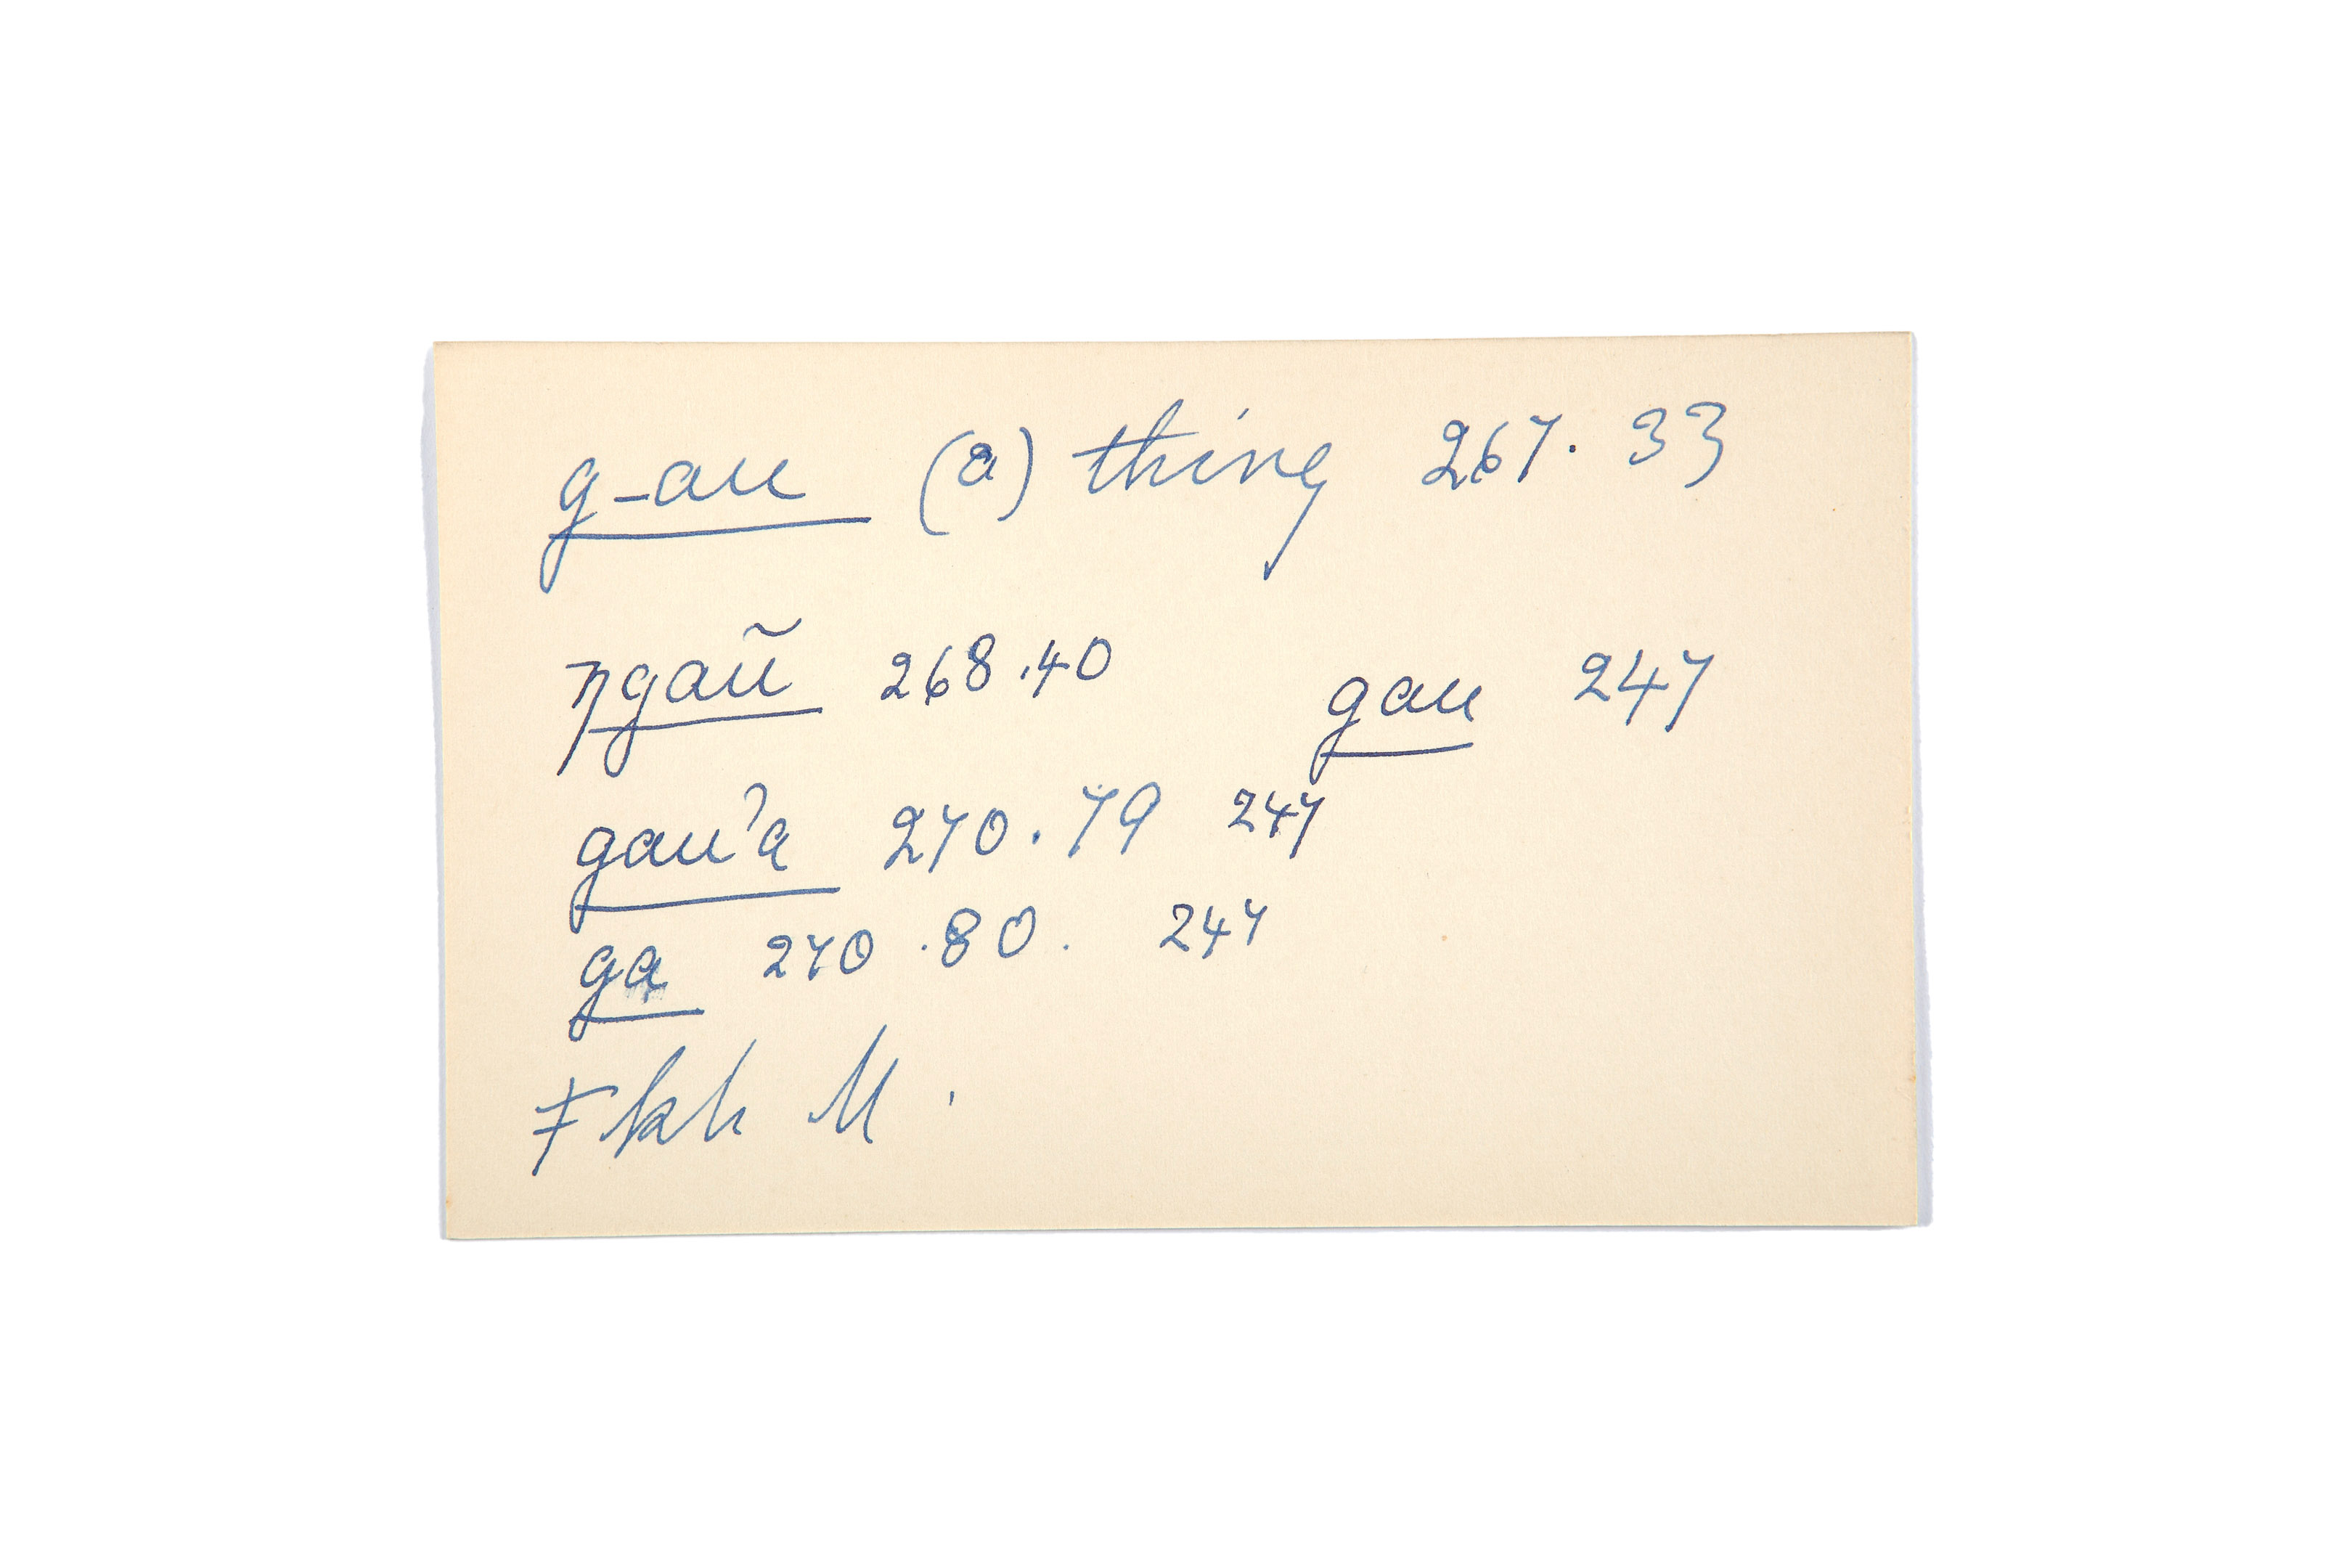 g-au (a) thing 267. 33
ŋgaũ 268.40 gau 247
gauʾa 270.79 247
ga 270.80. 247
≠ kh M.